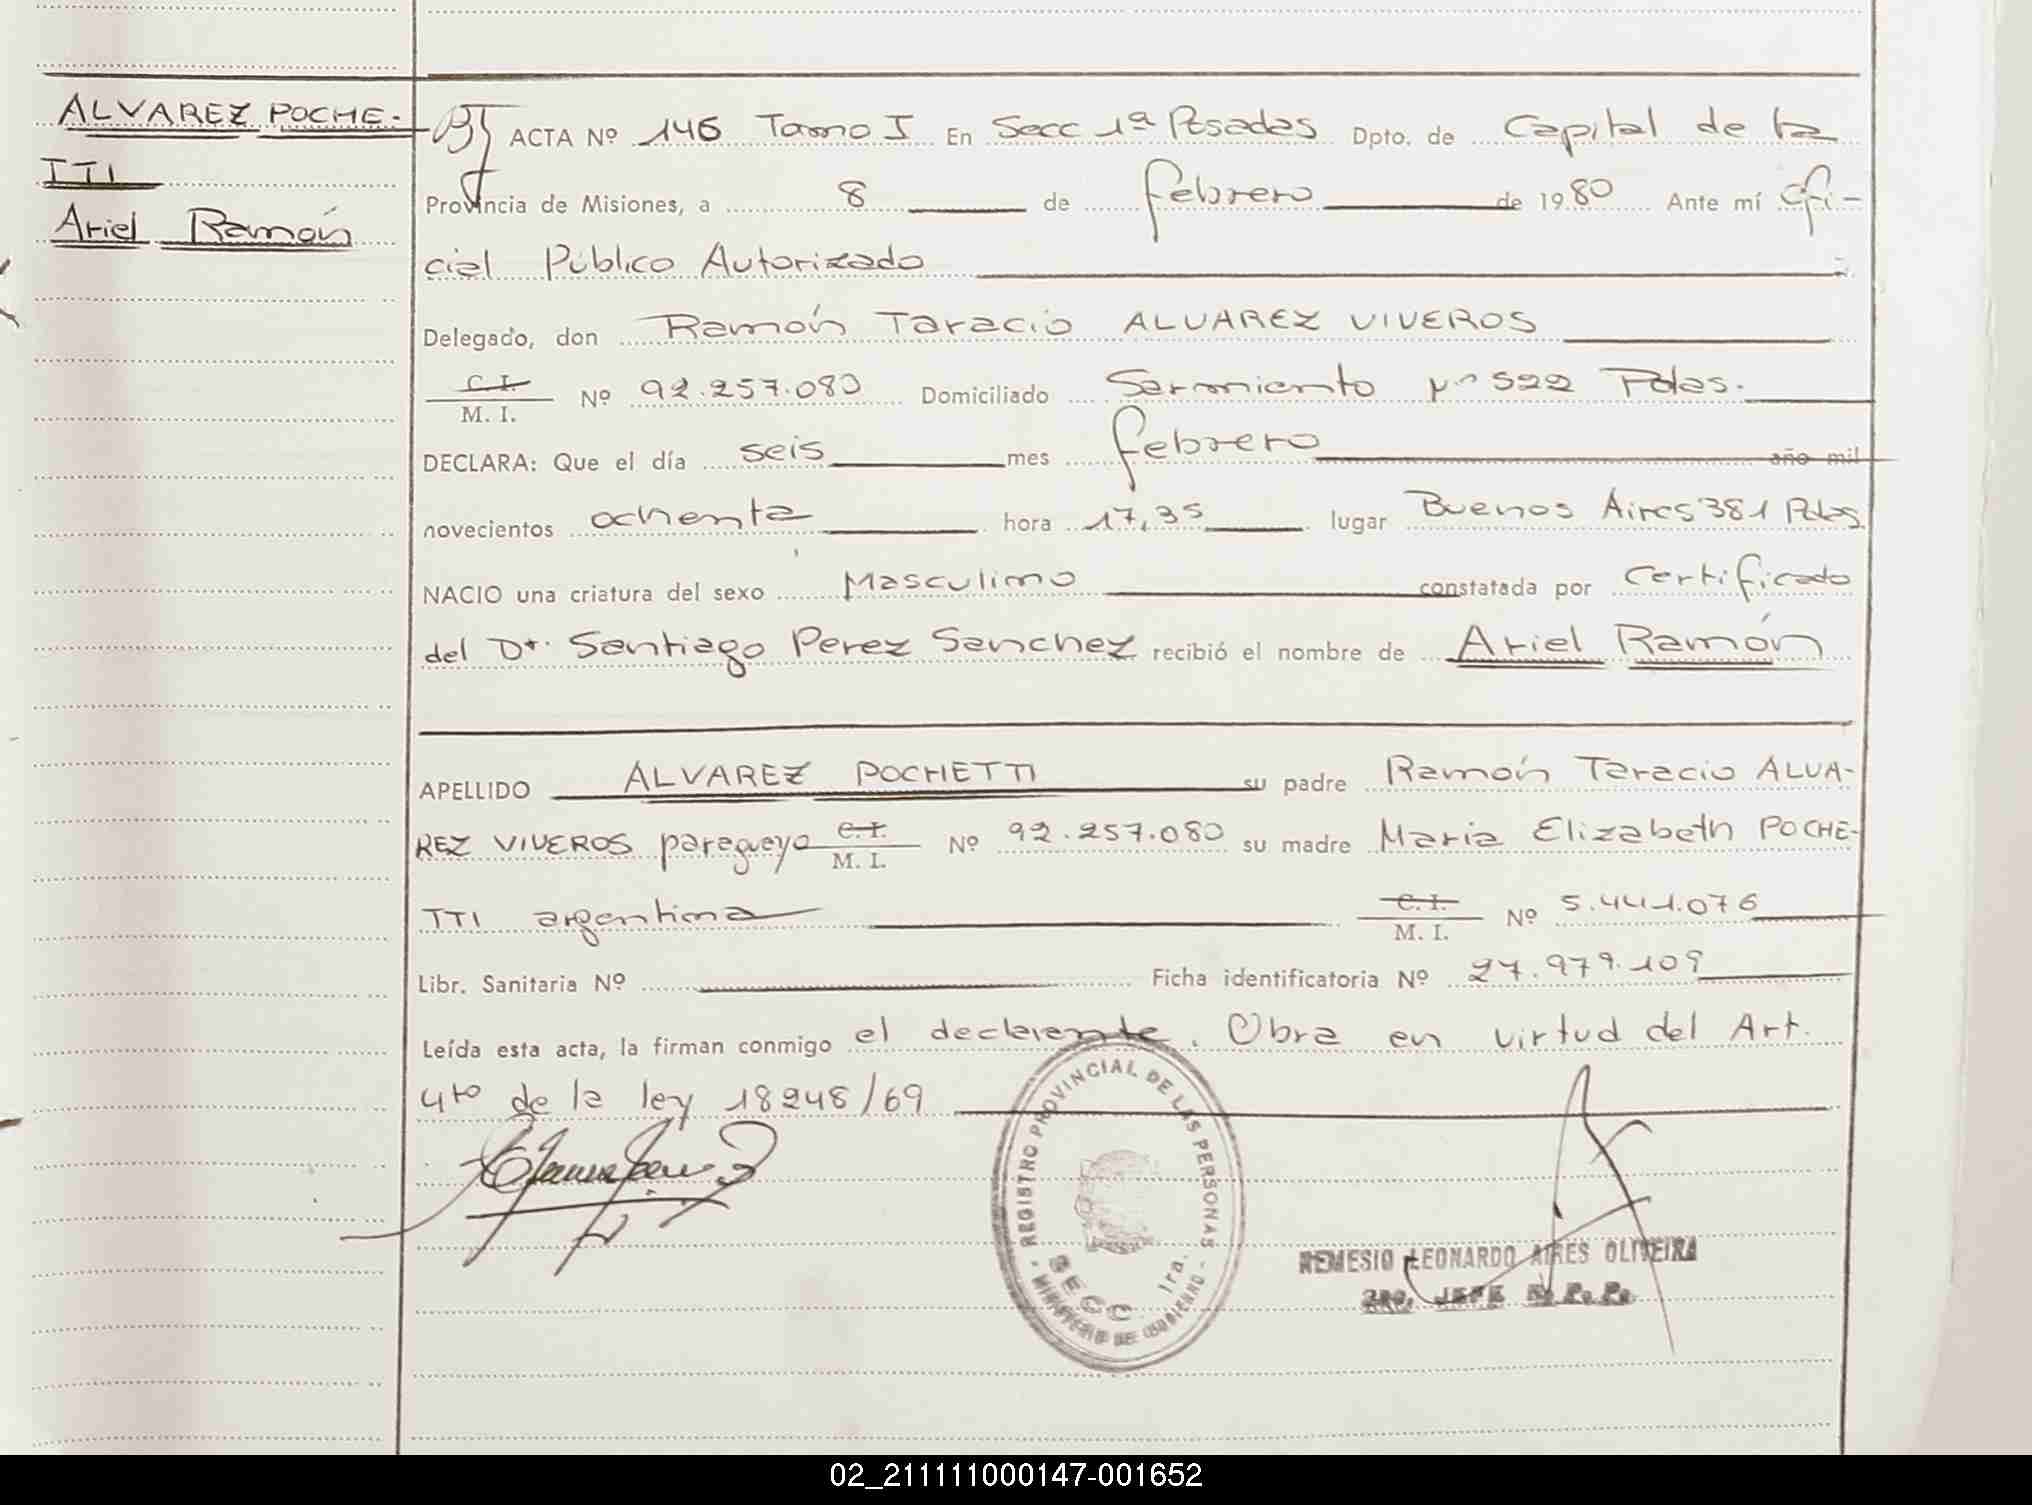 ALVAREZ POCHE-
TTI
Ariel Ramón
ACTA Nº 146 Tomo I En Secc 1ª Posadas Dpto. de Capital de la
Provincia de Misiones, a 8 de febrero de 1980 Ante mí ofi-
cial Público Autorizado
Delegado, don Ramón Taracio ALVAREZ VIVEROS
C.I.
M. I. Nº 92.257.080 Domiciliado Sarmiento Nº 522 Pdas.
DECLARA: Que el día seis mes febrero año mil
novecientos ochenta hora 17,35 lugar Buenos Aires 381 Pdas
NACIO una criatura del sexo Masculino constatada por Certificado
del Dr. Santiago Perez Sanchez recibió el nombre de Ariel Ramón
APELLIDO ALVAREZ POCHETTI su padre Ramón Taracio ALVA-
REZ VIVEROS paraguayo C.I. M. I. Nº 92.257.080 su madre Maria Elizabeth POCHE-
TTI argentina C.I. M. I. Nº 5.441.076
Libr. Sanitaria Nº Ficha identificatoria Nº 27.979.109
Leída esta acta, la firman conmigo el declarante. Obra en virtud del Art.
4to de la ley 18248/69
REGISTRO PROVINCIAL DE LAS PERSONAS
SECC. 1ra.
- MINISTERIO DE GOBIERNO -
NEMESIO LEONARDO AIRES OLIVEIRA
2DO. JEFE R. P. P.
02_211111000147-001652